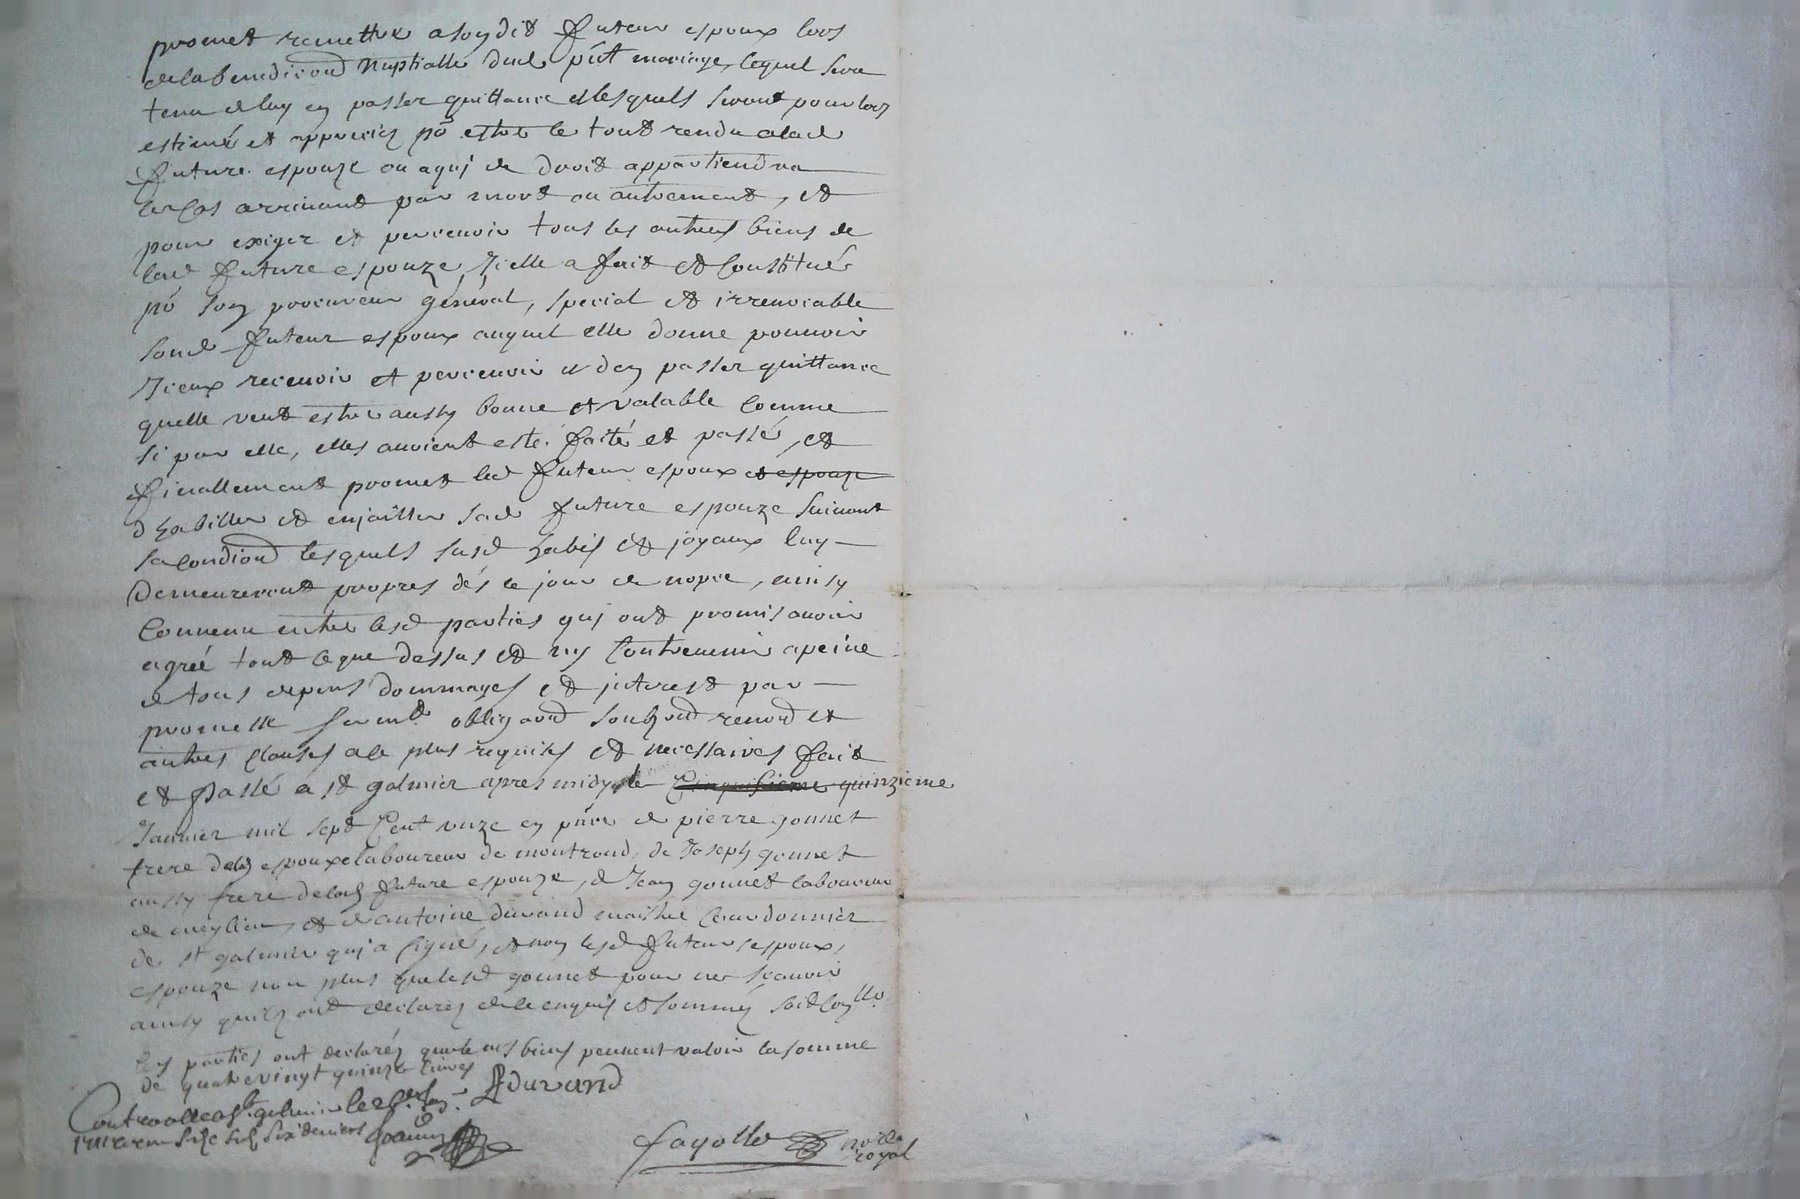 promet remettre a soydit futeur espoux lors
de la benediond nuptialle dud pñt mariage, lequel sera
tenu de luy en passer quittance et lesquels seront pour lors
estimé et appreciez po estre le tout rendu a lad
future espouze ou a quj de droit appartiendra
le cas arrivant par mort ou autrement, et
pour exiger et percevoir tous les autres biens de
lad future espouze, Jcelle a fait et Constitué
po son procureur général, special et irrevocable
sond futeur espoux auquel elle donne pouvoir
Jceux recevoir et percevoir et den passer quittance
quelle veut estre aussy bonne et valable Comme
si par elle, elles avoient esté faité et passé, et
finallement promet led futeur espoux et espouze
dhabiller et enjoiller sad future espouze suivant
sa Condiond lesquels susd habis et joyaux luy
demeureront propres dés le jour de nopce, ainsy
Convenu entre lesd parties quj ont promis avoir
agreé tout ce que dessus et ny Contrevenir a peine
de tous depens dommages et jnterest par
promesse sermt obligaond soubzond renond et
autres Clauses a ce plus requises et necessaires fait
et Passé a st galmier apres midy le Cinquisieme quinzieme
Janvier mil sept Cent unze en pñce de pierre gonnet
frere dud espoux laboureur de montrond, de Joseph gonnet
aussy frere de lad future espouze, de Jean gonnet laboureur
de meylieu, et de antoine durand maistre Courdonnier
de st galmier quj a signé, et non lesd futeurs espoux,
espouze non plus que lesd gonnet pour ne scavoir
ainsy quils ont declarez de ce enquis et sommez
les parties ont declaréz que leurs biens peuvent valoir la somme
de quatrevingt quinze livres
Controolle a st galmier le
Adurand
1711 receu seize sols six deniers
fayolle nore royal